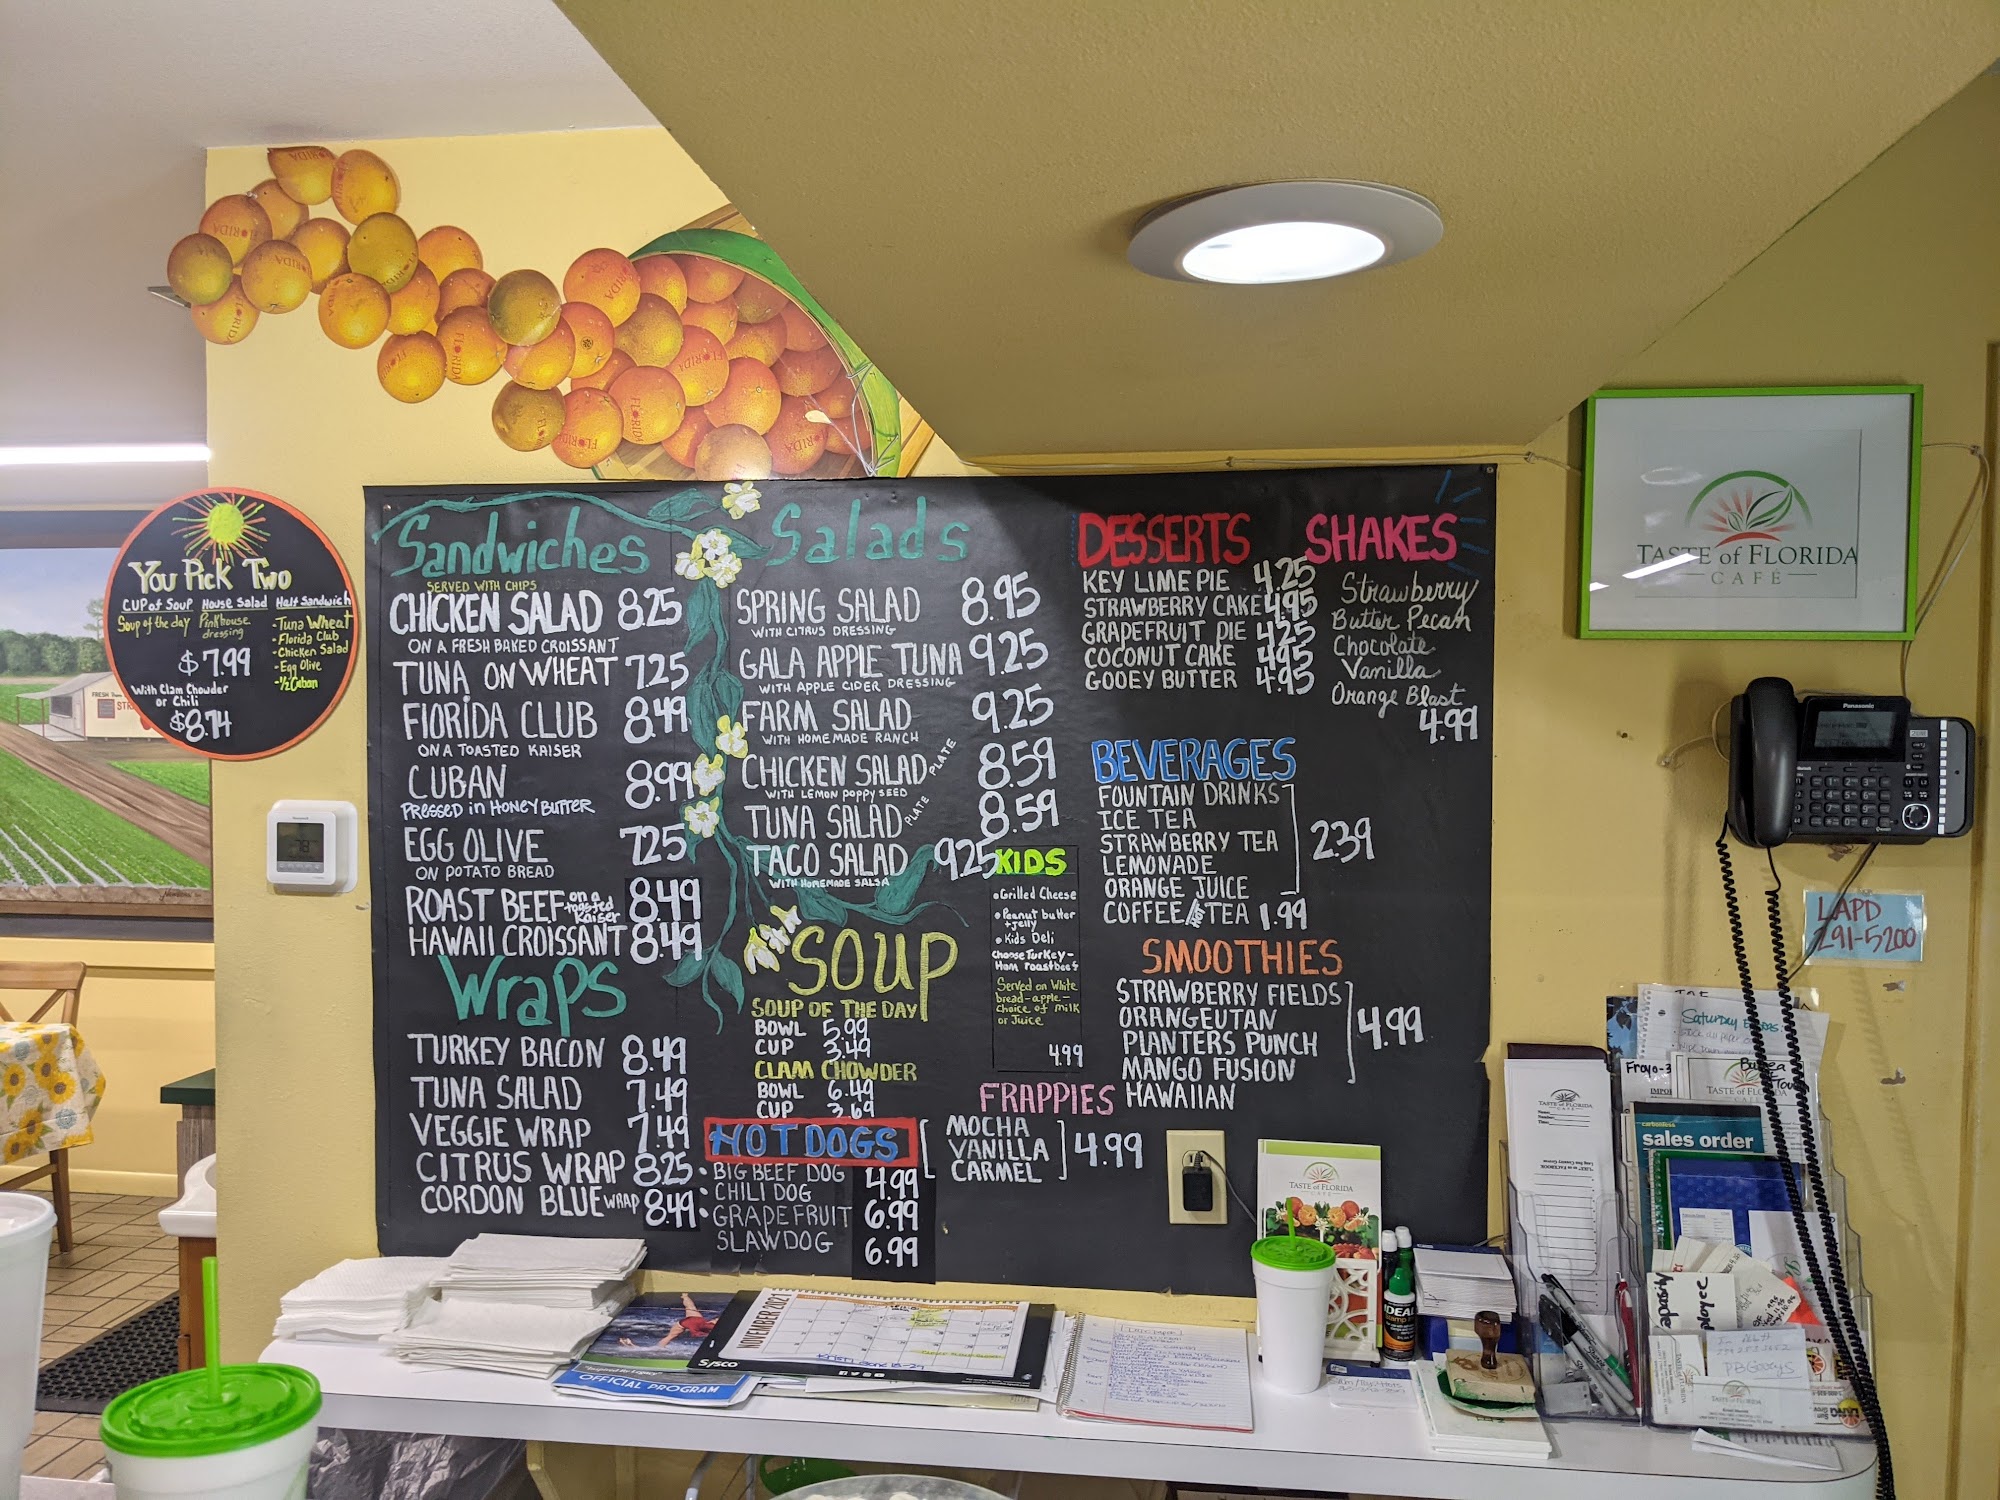 You Pick Two
Cup of Soup House Salad Half Sandwich
Soup of the day
Pinkhouse
dressing
- Tuna Wheat
- Florida Club
- Chicken Salad
- Egg Olive
- 1/2 Cuban
$7.99
With Clam Chowder
or Chili
$8.74
Sandwiches
SERVED WITH CHIPS
CHICKEN SALAD 8.25
ON A FRESH BAKED CROISSANT
TUNA ON WHEAT 7.25
FLORIDA CLUB 8.49
ON A TOASTED KAISER
CUBAN 8.99
PRESSED in HONEY BUTTER
EGG OLIVE 725
ON POTATO BREAD
ROAST BEEF on a toasted Kaiser 8.49
HAWAII CROISSANT 8.49
Wraps
TURKEY BACON 8.49
TUNA SALAD 7.49
VEGGIE WRAP 7.49
CITRUS WRAP 8.25
CORDON BLUE WRAP 8.49
Salads
SPRING SALAD 8.95
WITH CITRUS DRESSING
GALA APPLE TUNA 9.25
WITH APPLE CIDER DRESSING
FARM SALAD 9.25
WITH HOMEMADE RANCH
CHICKEN SALAD PLATE 8.59
WITH LEMON POPPY SEED
TUNA SALAD PLATE 8.59
TACO SALAD 925
WITH HOMEMADE SALSA
SOUP
SOUP OF THE DAY
BOWL 5.99
CUP 3.49
CLAM CHOWDER
BOWL 6.49
CUP 3.69
HOT DOGS
• BIG BEEF DOG 4.99
• CHILI DOG 6.99
• GRAPEFRUIT
SLAW DOG 6.99
KIDS
• Grilled Cheese
• Peanut butter
+ jelly
• Kids Deli
Choose Turkey-
Ham roastbeef
Served on White
bread-apple-
choice of milk
or Juice
4.99
FRAPPIES
MOCHA
VANILLA
CARMEL
4.99
DESSERTS
KEY LIME PIE 4.25
STRAWBERRY CAKE 4.95
GRAPEFRUIT PIE 4.25
COCONUT CAKE 4.95
GOOEY BUTTER 4.95
SHAKES
Strawberry
Butter Pecan
Chocolate
Vanilla
Orange Blast
4.99
BEVERAGES
FOUNTAIN DRINKS
ICE TEA
STRAWBERRY TEA
LEMONADE
ORANGE JUICE
2.39
COFFEE HOT TEA 1.99
SMOOTHIES
STRAWBERRY FIELDS
ORANGEUTAN
PLANTERS PUNCH
MANGO FUSION
HAWAIIAN
4.99
TASTE of FLORIDA
CAFÉ
Panasonic
LAPD
291-5200
Saturday
sales order
TASTE of FLORIDA
CAFÉ
NOVEMBER 2021
Sysco
OFFICIAL PROGRAM
IDEAL
FLORIDA